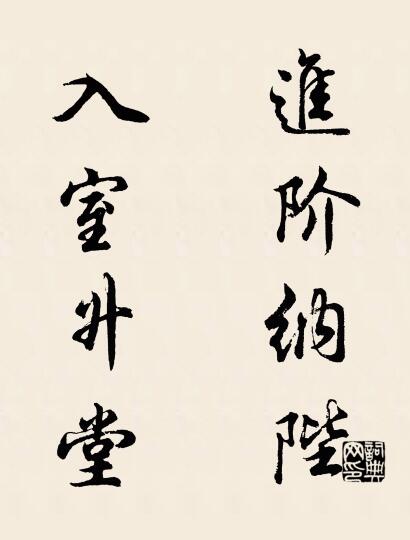 進阶纳陛
入室升堂
詞典网印